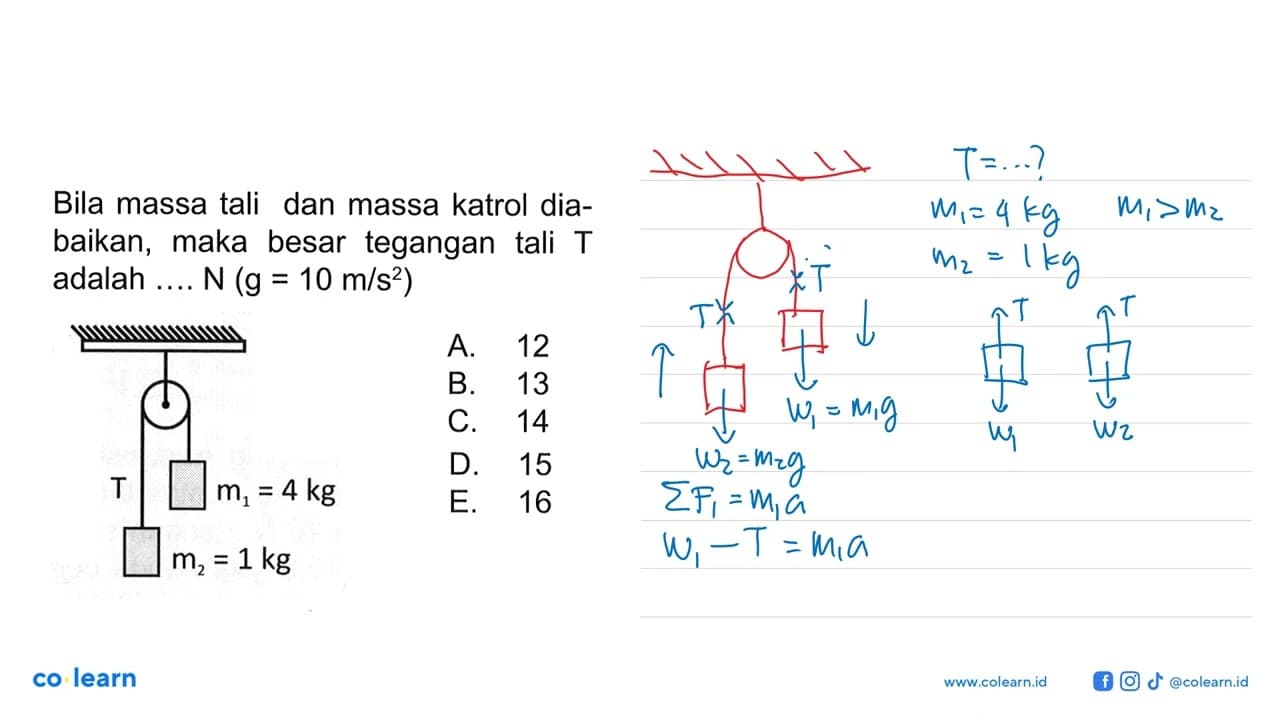 Bila massa tali dan massa katrol dia-
baikan, maka besar tegangan tali T
adalah .... N (g = 10 m/s²)
A. 12
B. 13
C. 14
D. 15
E. 16
T
m₁ = 4 kg
m₂ = 1 kg
T = ...?
m₁ = 4 kg m₁ > m₂
m₂ = 1 kg
T
T
T T
W₁ = m₁g
W₁ W₂
W₂ = m₂g
ΣF₁ = m₁a
W₁ - T = m₁a
co·learn
www.colearn.id
@colearn.id